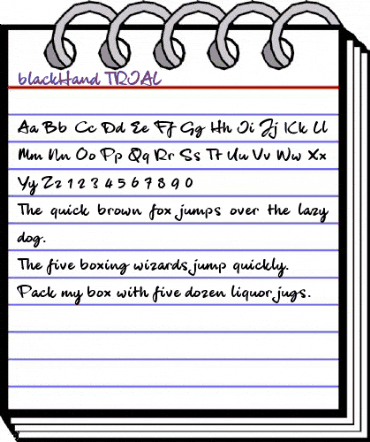 blackHand TRIAL
Aa Bb Cc Dd Ee Ff Gg Hh Ii Jj Kk Ll
Mm Nn Oo Pp Qq Rr Ss Tt Uu Vv Ww Xx
Yy Zz 1 2 3 4 5 6 7 8 9 0
The quick brown fox jumps over the lazy
dog.
The five boxing wizards jump quickly.
Pack my box with five dozen liquor jugs.